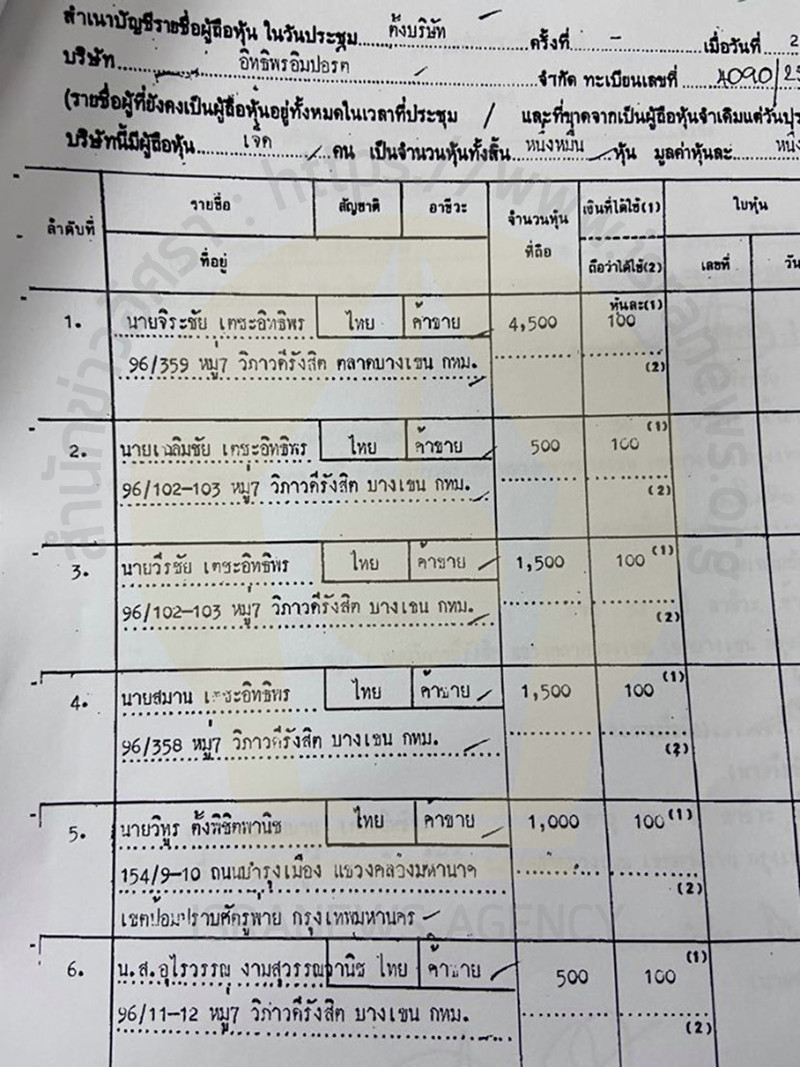 สำเนาบัญชีรายชื่อผู้ถือหุ้น ในวันประชุม ตั้งบริษัท ครั้งที่ - เมื่อวันที่ 2
บริษัท อิทธิพรอิมปอรต จำกัด ทะเบียนเลขที่ 4090/25
(รายชื่อผู้ที่ยังคงเป็นผู้ถือหุ้นอยู่ทั้งหมดในเวลาที่ประชุม / และที่ขาดจากเป็นผู้ถือหุ้นจำเดิมแต่วันประ
บริษัทนี้มีผู้ถือหุ้น เจ็ด คน เป็นจำนวนหุ้นทั้งสิ้น หนึ่งหมื่น หุ้น มูลค่าหุ้นละ หนึ่ง
ลำดับที่ รายชื่อ สัญชาติ อาชีวะ จำนวนหุ้น เงินที่ได้ใช้(1) ใบหุ้น
ที่อยู่ ที่ถือ ถือว่าได้ใช้(2) เลขที่ วัน
หุ้นละ(1)
1. นายจิระชัย เตชะอิทธิพร ไทย ค้าขาย 4,500 100
96/359 หมู่7 วิภาวดีรังสิต ตลาดบางเขน กทม. (2)
2. นายเฉลิมชัย เตชะอิทธิพร ไทย ค้าขาย 500 100 (1)
96/102-103 หมู่7 วิภาวดีรังสิต บางเขน กทม. (2)
3. นายวีรชัย เตชะอิทธิพร ไทย ค้าขาย 1,500 100 (1)
96/102-103 หมู่7 วิภาวดีรังสิต บางเขน กทม. (2)
4. นายสมาน เตชะอิทธิพร ไทย ค้าขาย 1,500 100 (1)
96/358 หมู่7 วิภาวดีรังสิต บางเขน กทม. (2)
5. นายวิทูร ตั้งพิชิตพานิช ไทย ค้าขาย 1,000 100 (1)
154/9-10 ถนนบำรุงเมือง แขวงคลองมหานาค (2)
เขตป้อมปราบศัตรูพ่าย กรุงเทพมหานคร
6. น.ส.อุไรวรรณ งามสุวรรณพานิช ไทย ค้าขาย 500 100 (1)
96/11-12 หมู่7 วิภาวดีรังสิต บางเขน กทม. (2)
สำนักข่าวอิศรา : https://www.isranews.org
ISRANEWS AGENCY